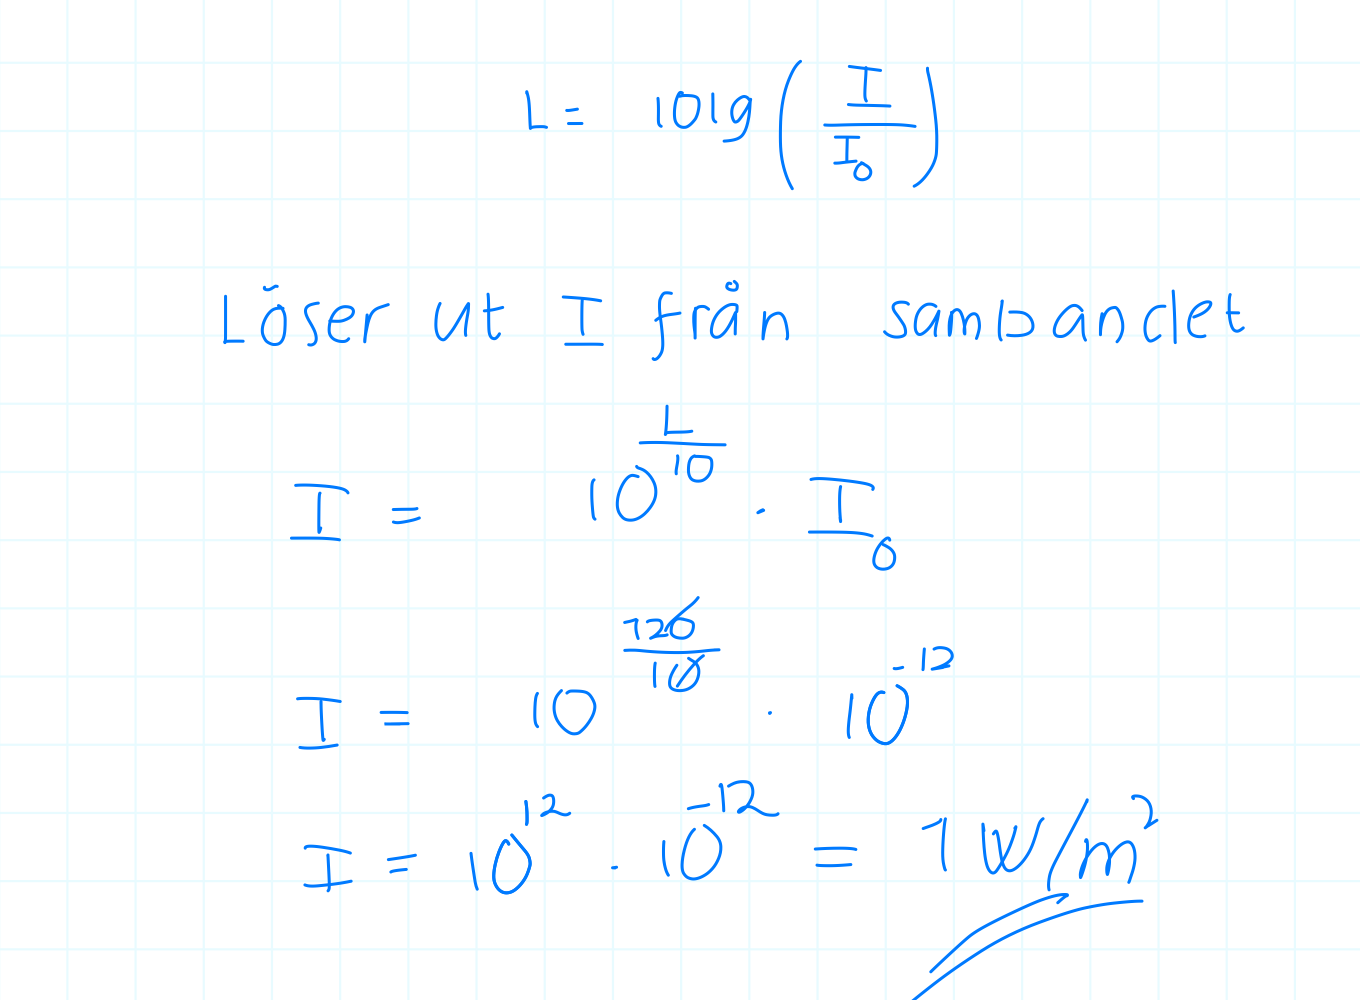 L = 10lg(I/I₀)
Löser ut I från sambandet
I = 10^(L/10) · I₀
I = 10^(120/10) · 10^(-12)
I = 10^12 · 10^(-12) = 1 W/m²